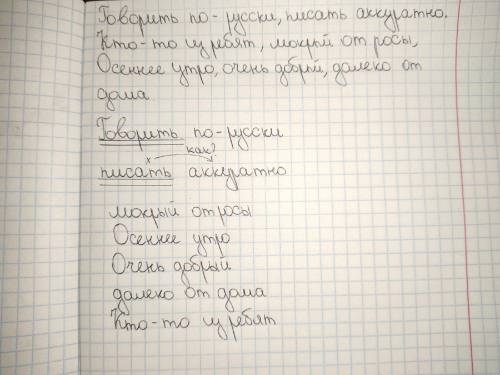 Говорить по-русски, писать аккуратно.
Кто-то из ребят, мокрый от росы,
Осеннее утро, очень добрый, далеко от
дома
Говорить по-русски
как?
х
писать аккуратно
мокрый от росы
Осеннее утро
Очень добрый
далеко от дома
Кто-то из ребят